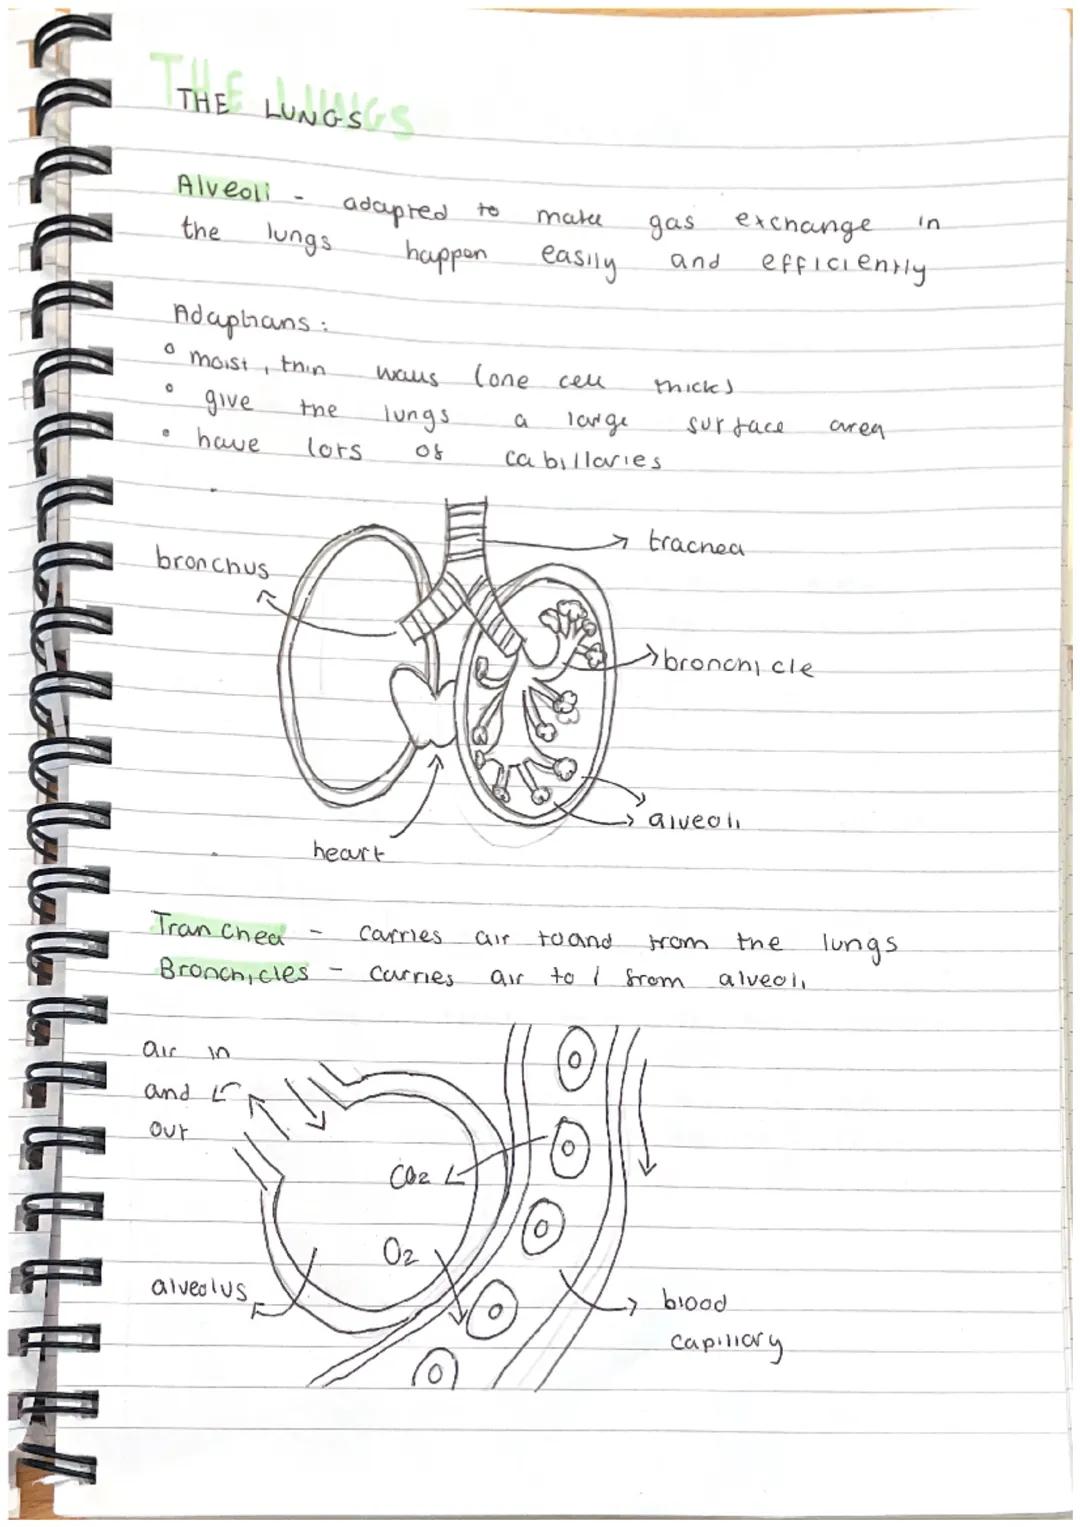 THE LUNGS
THE LUNGS
Alveoli - adapted to make gas exchange in
the lungs happen easily and efficiently
Adaptians:
° moist, thin walls (one cell thick)
° give the lungs a large surface area
° have lots of cabillaries
trachea
bronchus
bronchicle
alveoli
heart
Tranchea - carries air to and from the lungs
Bronchicles - carries air to / from alveoli
air in
and
out
CO2
O2
alveolus
blood
capillary